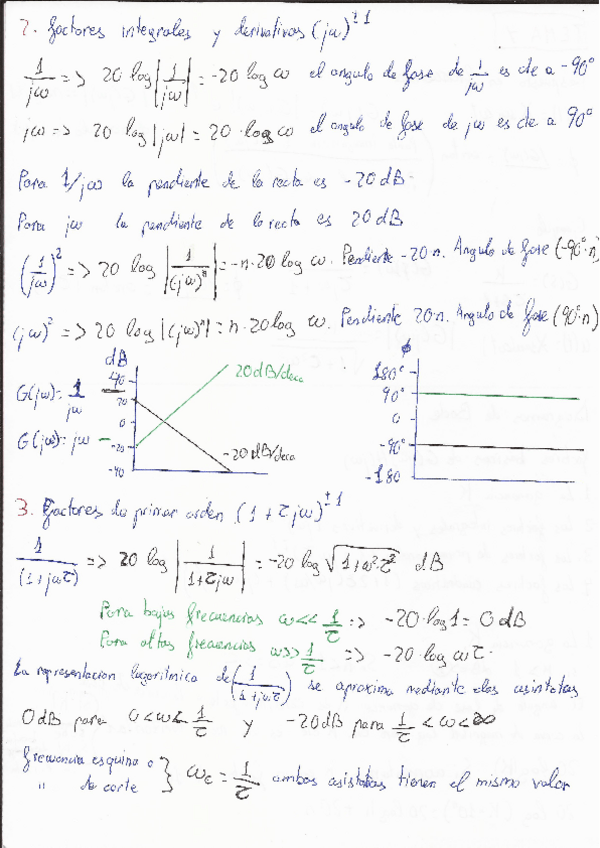 2. Factores integrales y derivativos (jω)^±1
1/jω => 20 log|1/jω| = -20 log ω el angulo de fase de 1/jω es cte a -90°
jω => 20 log|jω| = 20·log ω el angulo de fase de jω es cte a 90°
Para 1/jω la pendiente de la recta es -20dB
Para jω la pendiente de la recta es 20dB
(1/jω)² => 20 log |1/(jω)^n| = -n·20 log ω. Pendiente -20·n. Angulo de fase (-90°·n)
(jω)² => 20 log|(jω)^n| = n·20log ω. Pendiente 20·n. Angulo de fase (90°·n)
dB
40
20
0
-20
-40
G(jω)= 1/jω
G(jω)= jω
20dB/deca
-20dB/deca
ϕ
180°
90°
0
-90°
-180
3. Factores de primer orden (1+τjω)^±1
1/(1+jωτ) => 20 log |1/(1+τjω)| = -20 log √(1+ω²·τ²) dB
Para bajas frecuencias ω<< 1/τ => -20·log1 = 0dB
Para altas frecuencias ω>> 1/τ => -20·log ωτ
La representacion logaritmica de (1/(1+jωτ)) se aproxima mediante dos asintotas
0dB para 0<ω< 1/τ y -20dB para 1/τ <ω<∞
frecuencia esquina o
" de corte } ωc = 1/τ ambas asistotas tienen el mismo valor